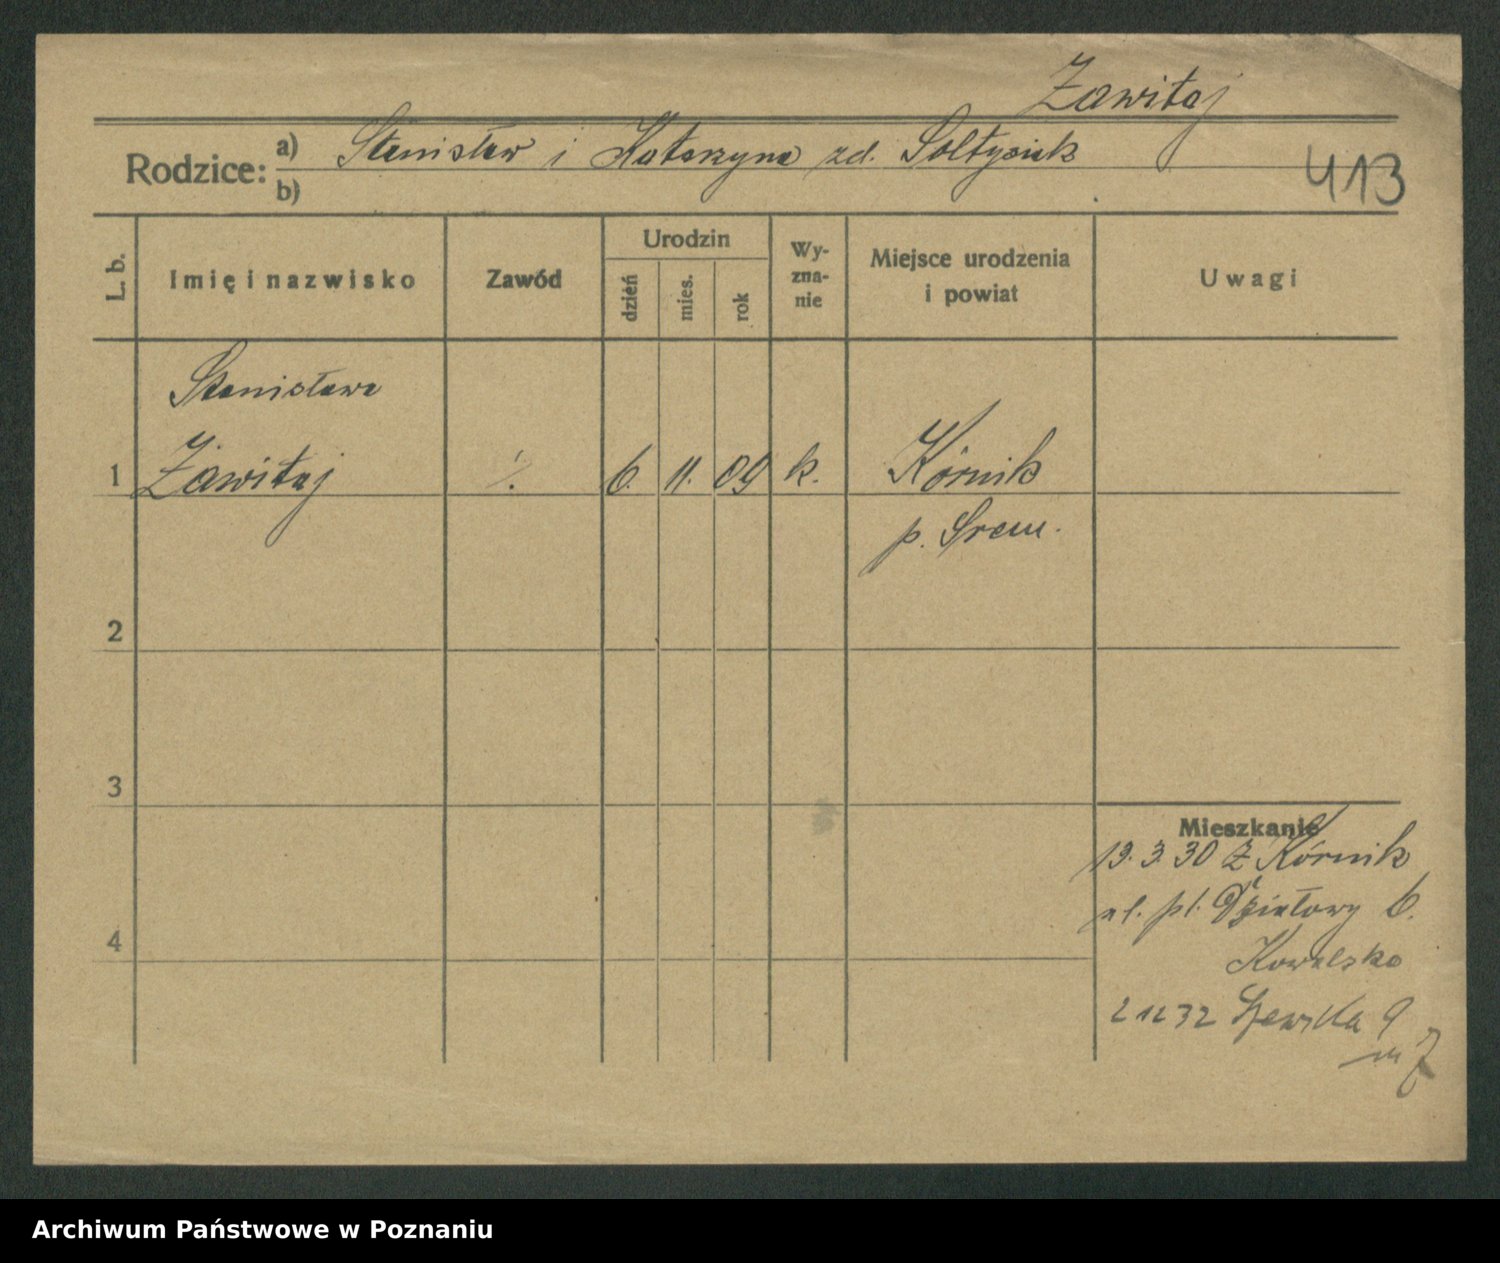 Żawitaj
Rodzice: a) Stanisław i Katarzyna zd. Sołtysiak
b)
413
L. b.
Imię i nazwisko
Zawód
Urodzin
dzień
mies.
rok
Wy-
zna-
nie
Miejsce urodzenia
i powiat
Uwagi
Stanisława
1 Żawitaj % 6. 11. 09 k. Kórnik
p. Śrem.
2
3
Mieszkanie
19. 3. 30 z Kórnik
ul. pl. Działowy 6.
4
Kowalska
2 12 32 Szewska 9
m 7
Archiwum Państwowe w Poznaniu